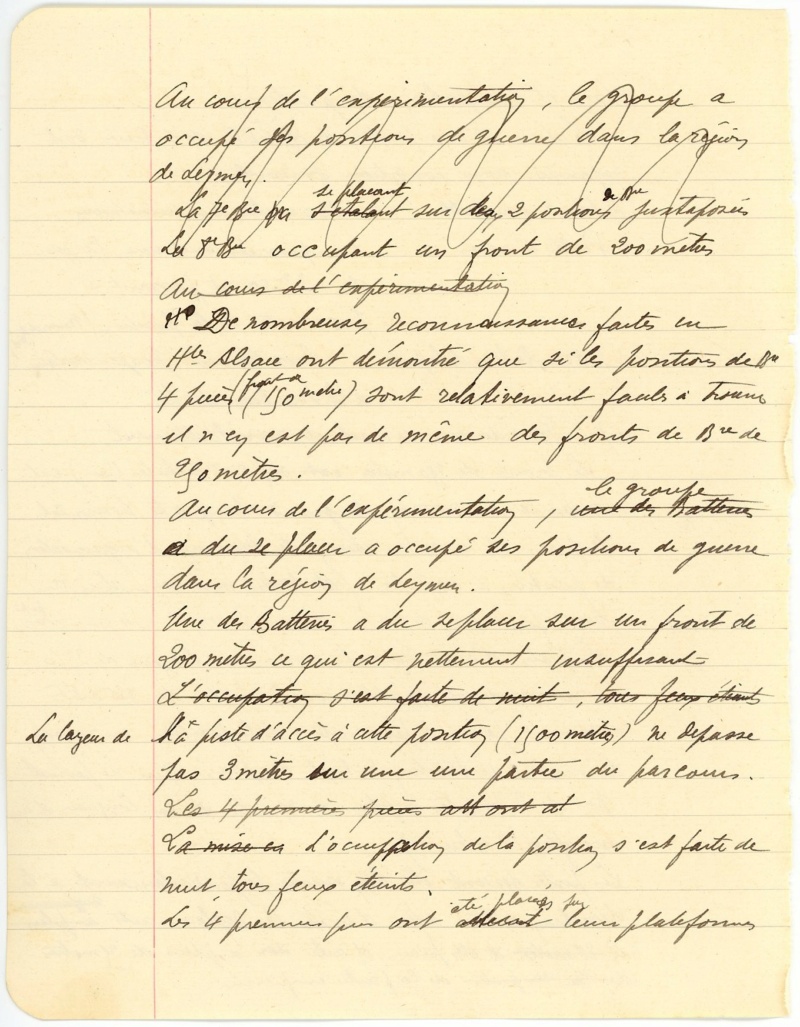 Au cours de l'expérimentation, le groupe a
occupé ses positions de guerre dans la région
de Leymen.
se placant de Bie
La 7e Bie s'étalant sur des 2 positions juxtaposées
La 8e Bie occupant un front de 200 mètres
Au cours de l'expérimentation
De nombreuses reconnaissances faites en
Hte Alsace ont démontré que si les positions de Bie
front de
4 pièces (150 mètres) sont relativement faciles à trouver
il n'en est pas de même des fronts de Bie de
250 mètres.
le groupe
Au cours de l'expérimentation, une des Batteries
a du se placer a occupé ses positions de guerre
dans la région de Leymen.
Une des Batteries a du se placer sur un front de
200 mètres ce qui est nettement insuffisant
L'occupation s'est faite de nuit, tous feux éteints
La largeur de la piste d'accès à cette position (1500 mètres) ne dépasse
pas 3 mètres sur une une partie du parcours.
Les 4 premières pièces ont
La mise en L'occupation de la position s'est faite de
nuit, tous feux éteints.
été placées sur
Les 4 premières ont leurs plateformes